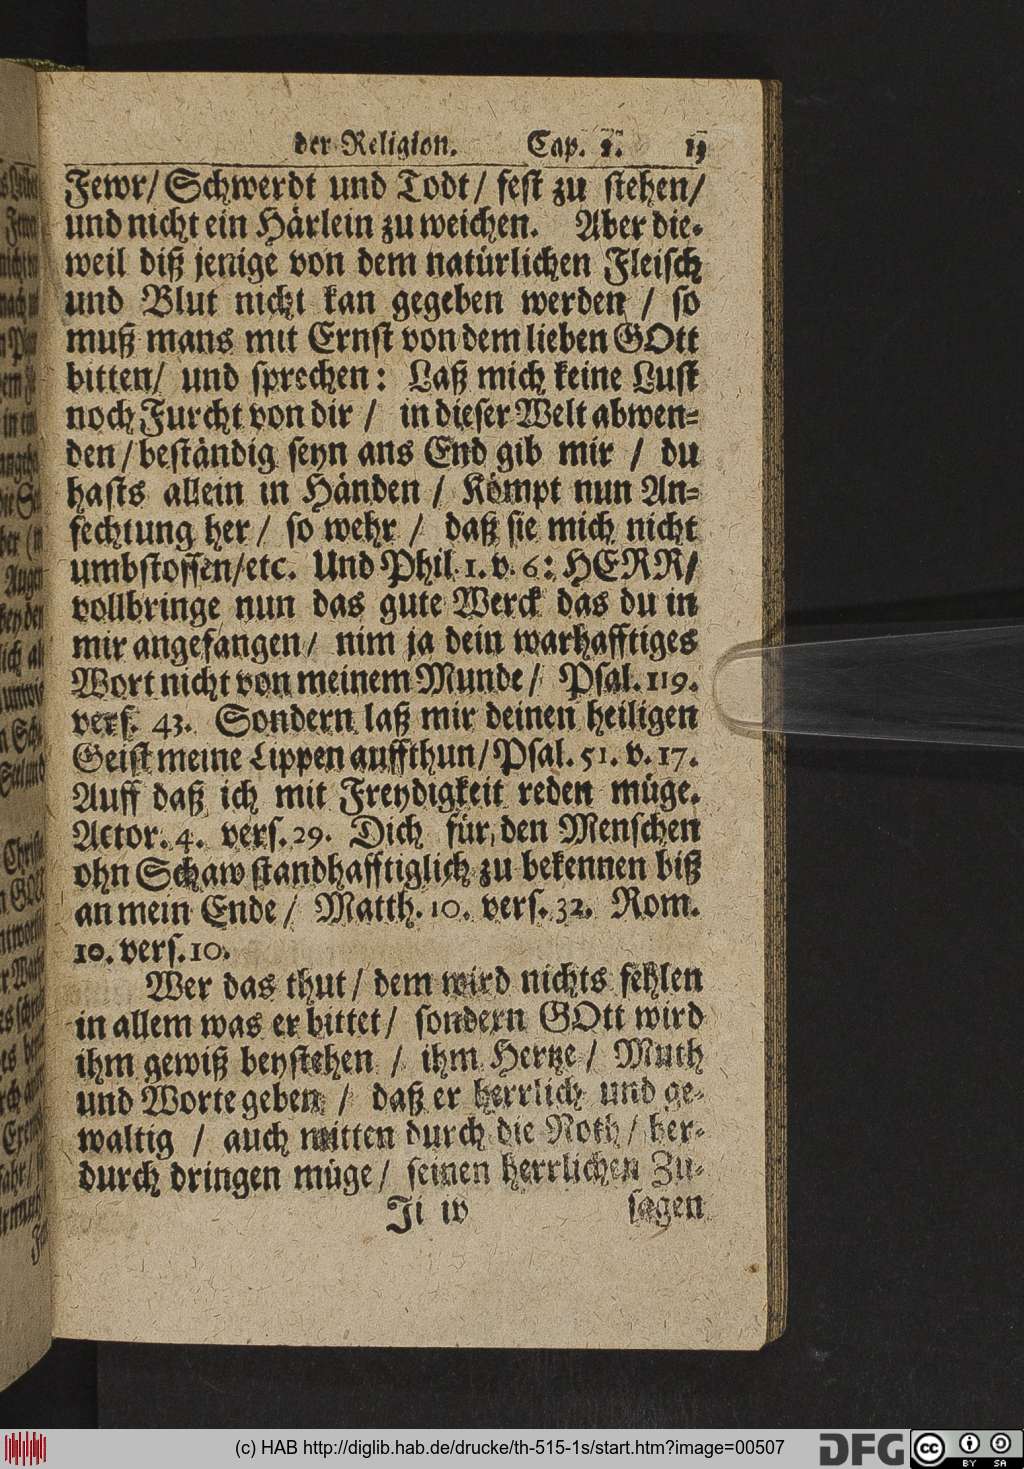 der Religion. Cap. 1. 15
Fewr/ Schwerdt und Todt/ fest zu stehen/
und nicht ein Härlein zu weichen. Aber die-
weil diß jenige von dem natürlichen Fleisch
und Blut nicht kan gegeben werden / so
muß mans mit Ernst von dem lieben GOtt
bitten/ und sprechen: Laß mich keine Lust
noch Furcht von dir / in dieser Welt abwen-
den / beständig seyn ans End gib mir / du
hasts allein in Händen / Kömpt nun An-
fechtung her / so wehr / daß sie mich nicht
umbstossen/etc. Und Phil. 1. v. 6: HERR/
vollbringe nun das gute Werck das du in
mir angefangen/ nim ja dein warhafftiges
Wort nicht von meinem Munde / Psal. 119.
vers. 43. Sondern laß mir deinen heiligen
Geist meine Lippen auffthun/ Psal. 51. v. 17.
Auff daß ich mit Freydigkeit reden müge.
Actor. 4. vers. 29. Dich für den Menschen
ohn Schaw standhafftiglich zu bekennen biß
an mein Ende / Matth. 10. vers. 32. Rom.
10. vers. 10.
Wer das thut / dem wird nichts fehlen
in allem was er bittet/ sondern GOtt wird
ihm gewiß beystehen / ihm Hertze / Muth
und Worte geben / daß er herrlich und ge-
waltig / auch mitten durch die Noth / her-
durch dringen müge / seinen herrlichen Zu-
Ji iv sagen
(c) HAB http://diglib.hab.de/drucke/th-515-1s/start.htm?image=00507
DFG
cc BY SA